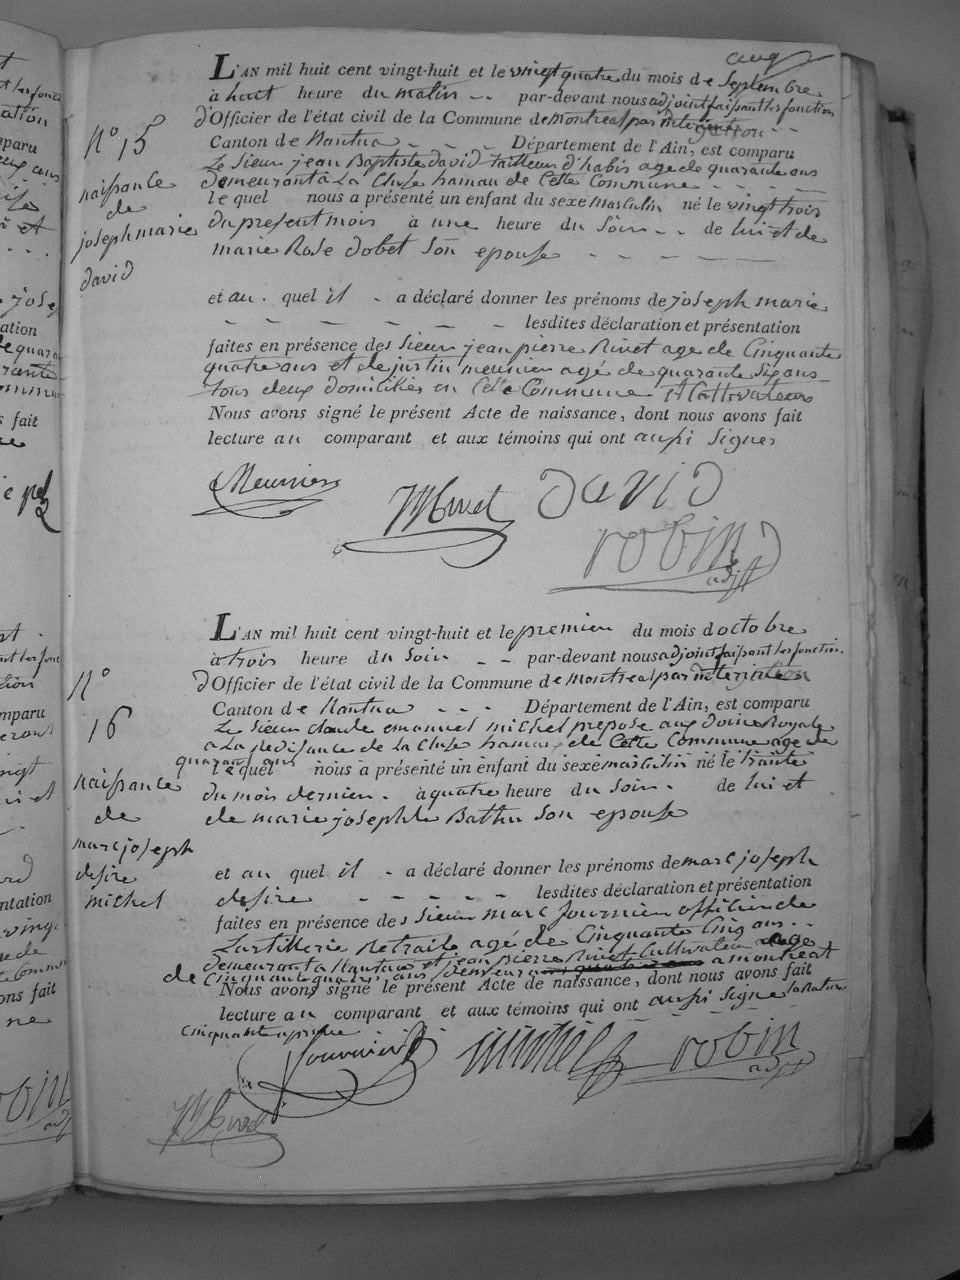 L'AN mil huit cent vingt-huit et le vingt quatre du mois de Septembre
à huit heure du matin -- par-devant nous adjoint faisant les fonction
d'Officier de l'état civil de la Commune de montreal par
Canton de Nantua - - - - Département de l'Ain, est comparu
Le Sieur jean Baptiste david tailleur d'habis age de quarante ans
demeurant à La Cluse hamau de Cette Commune - - - - -
lequel nous a présenté un enfant du sexe masculin né le vingt trois
du present mois à une heure du Soir - - de lui et de
marie Rose dobet Son epouse - - - - -
et au quel il - a déclaré donner les prénoms de joseph marie
- - - - - - lesdites déclaration et présentation
faites en présence des Sieur jean pierre Rivet age de Cinquante
quatre ans et de justin meunier agé de quarante six ans
tous deux domiciliés en Cette Commune
Nous avons signé le présent Acte de naissance, dont nous avons fait
lecture au comparant et aux témoins qui ont aussi Signes
N° 15
naissance
de
joseph marie
david
Meunier
david
robin
adjt
L'AN mil huit cent vingt-huit et le premier du mois doctobre
à trois heure du Soir - - par-devant nous adjoint faisant les fonction
d'Officier de l'état civil de la Commune de montreal par
Canton de Nantua - - - Département de l'Ain, est comparu
Le Sieur claude emanuel michel prepose aux doine Royale
a La Residance de La Cluse hamau de Cette Commune age de
quarant ans
lequel nous a présenté un enfant du sexe masculin né le trante
du mois dernier - à quatre heure du Soir - de lui et
de marie josephte Bathu Son epouse
et au quel il - a déclaré donner les prénoms de marc joseph
desire - - - - - lesdites déclaration et présentation
faites en présence des Sieur marc fournier officier de
Lartillerie Retraite agé de Cinquante Cinq ans - -
demeurant a Nantua et jean pierre Rivet Cultivateur age
de Cinquante quatre ans demeurant a montreal
Nous avons signé le présent Acte de naissance, dont nous avons fait
lecture au comparant et aux témoins qui ont aussi Signe
N°
16
naissance
de
marc joseph
desire
michel
fournier
michel
robin
adjt